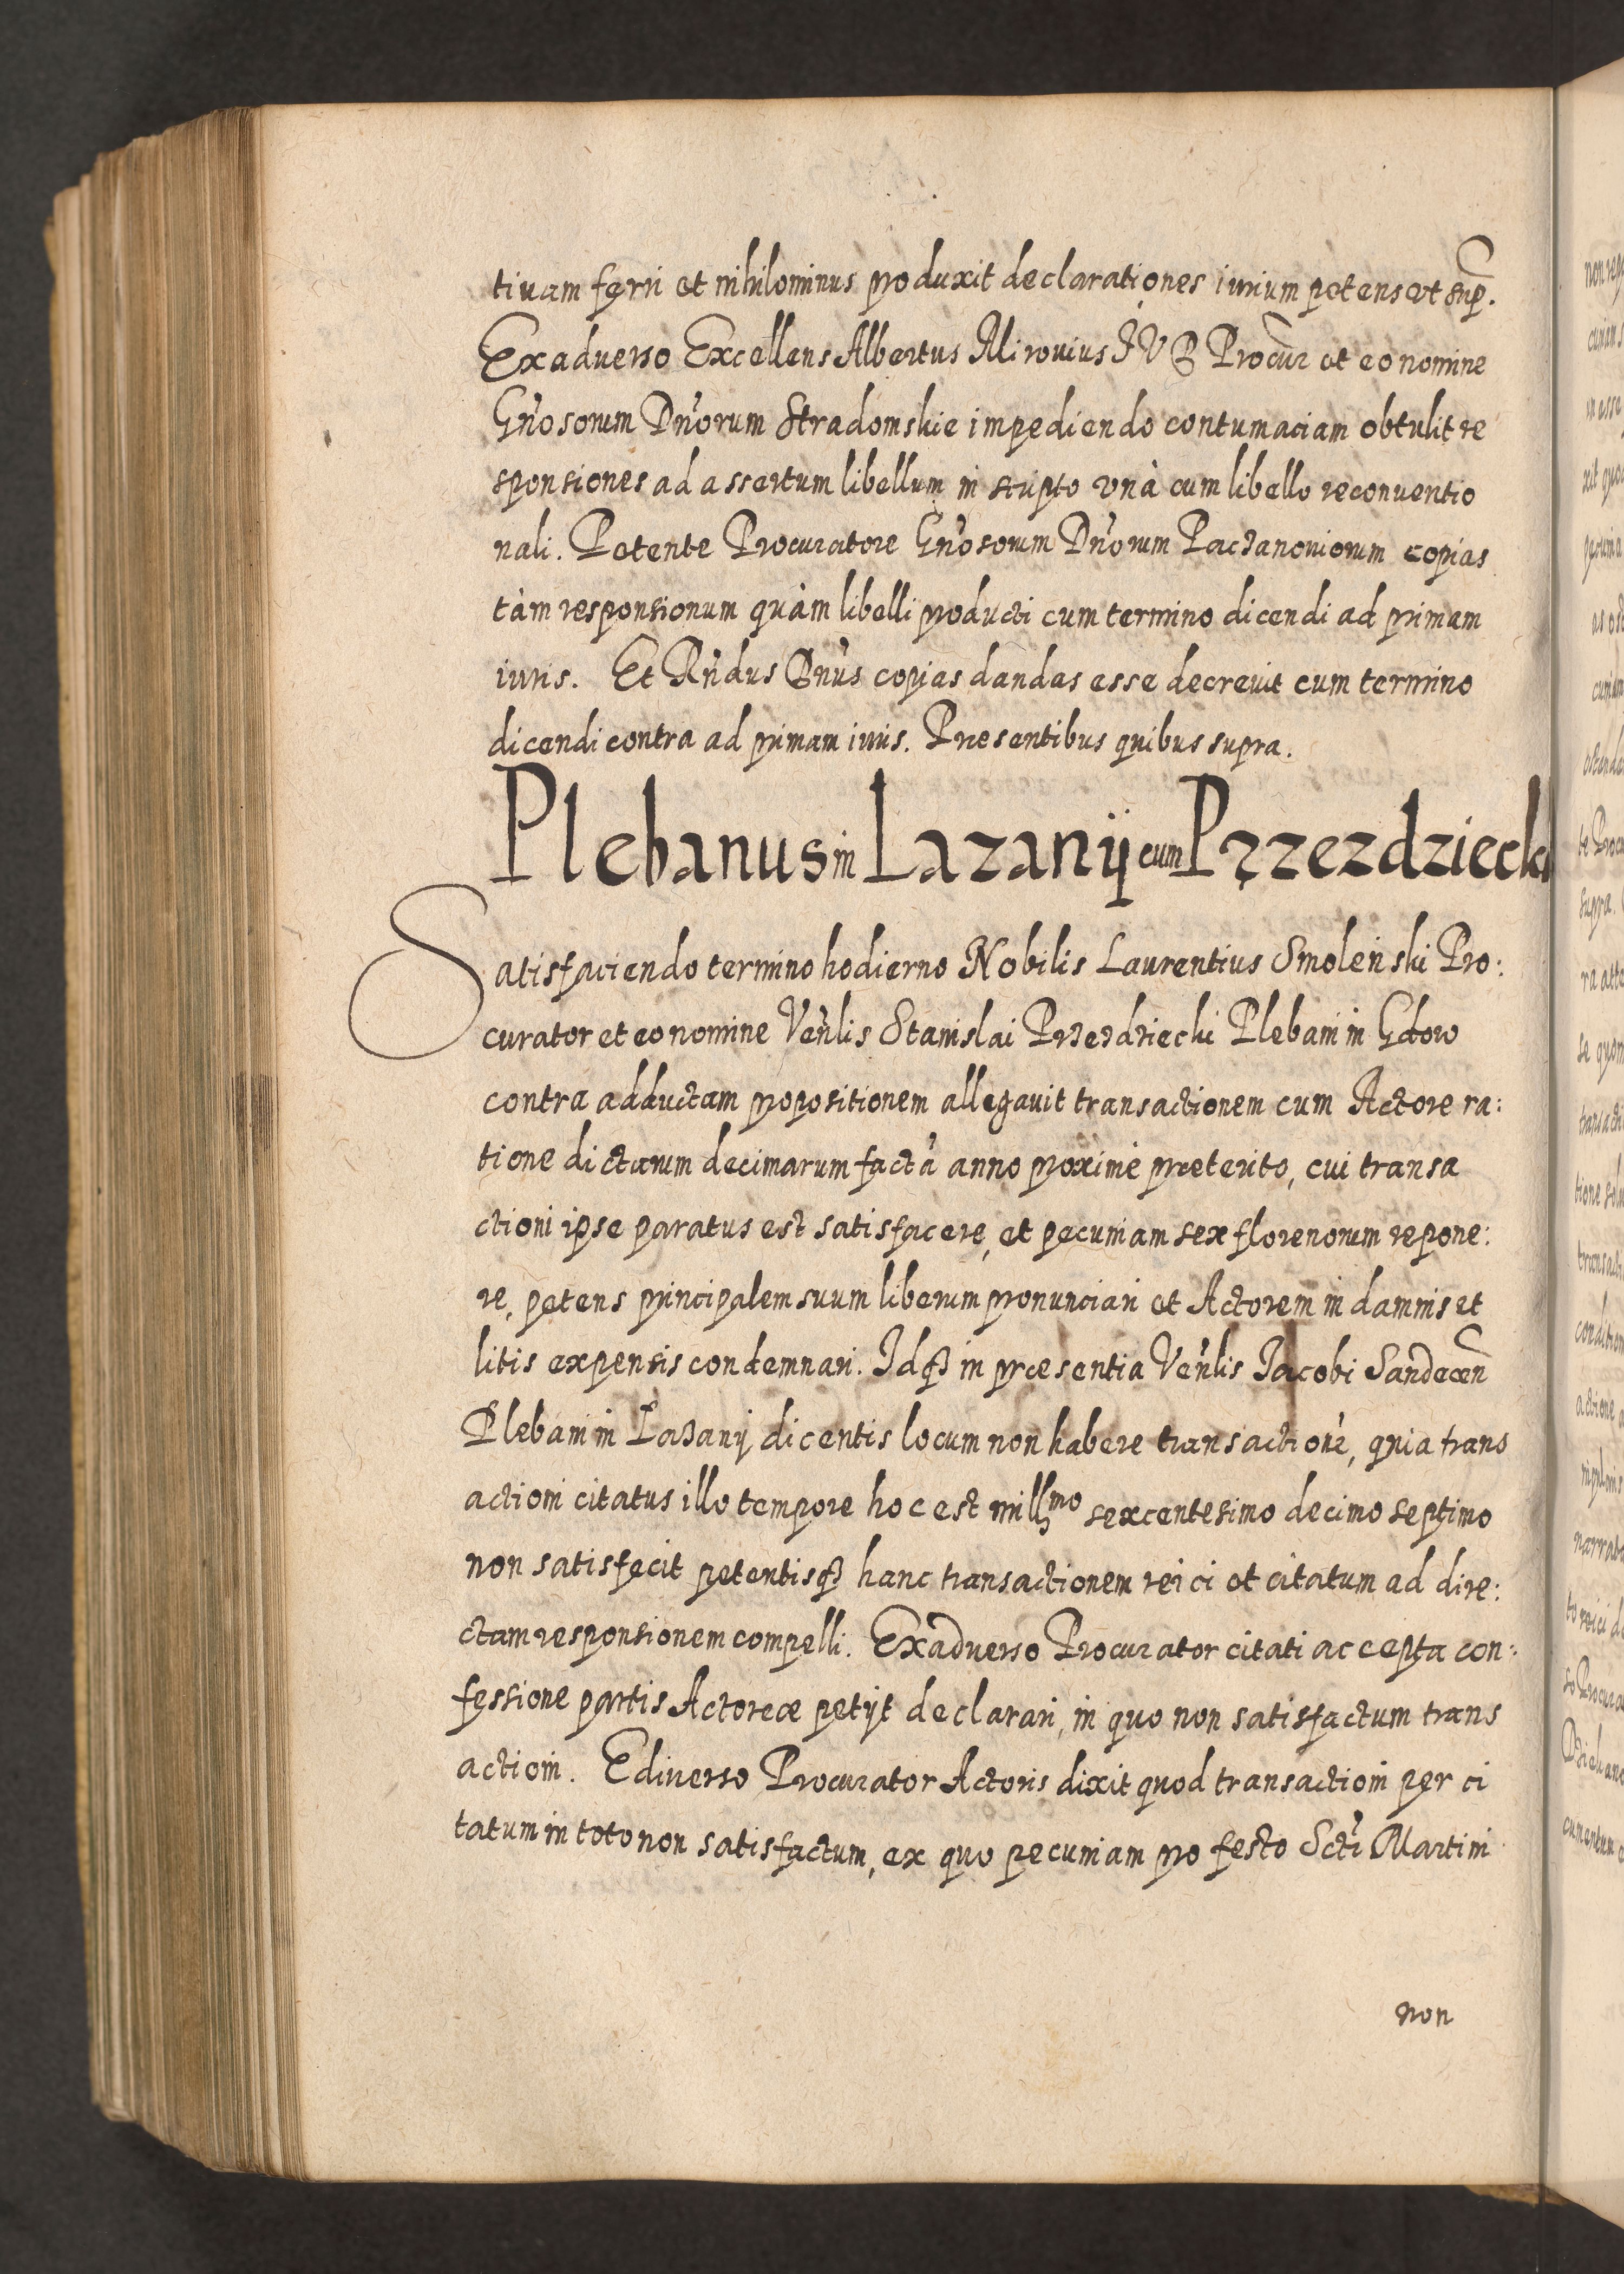 tiuam ferri et nihilominus produxit declarationes iurium petens ut sup.
Ex aduerso Excellens Albertus Mirouius I V D Procur et eo nomine
Gn̄osorum Dn̄orum Stradomskie impediendo contumaciam obtulit re
sponsiones ad assertum libellum in scripto unà cum libello reconuentio
nali. Petente Procuratore Gn̄osorum Dn̄orum Paczanouiorum copias
tàm responsionum quàm libelli producti cum termino dicendi ad primam
iuris. Et Rn̄dus Dn̄us copias dandas esse decreuit cum termino
dicendi contra ad primam iuris. Presentibus quibus supra.
Plebanus in Lazanÿ cum Przezdziecki
Satisfaciendo termino hodierno Nobilis Laurentius Smoleński Pro:
curator et eo nomine Ven̄lis Stanislai Przezdziecki Plebani in Gdow
contra adductam propositionem allegauit transactionem cum Actore ra:
tione dictarum decimarum factã anno proximè præterito, cui transa
ctioni ipse paratus est satisfacere, et pecuniam sex florenorum repone:
re, petens principalem suum liberum pronunciari et Actorem in damnis et
litis expensis condemnari. Idq3 in præsentia Ven̄lis Jacobi Sandecen̄
Plebani in Łazanÿ dicentis locum non habere transactionē, quia trans
actioni citatus illo tempore hoc est millmo sexcentesimo decimo septimo
non satisfecit petentisq3 hanc transactionem reici et citatum ad dire:
ctam responsionem compelli. Ex aduerso Procurator citati accepta con:
fessione partis Actoreæ petÿt declarari, in quo non satisfactum trans
actioni. E diuerso Procurator Actoris dixit quod transactioni per ci
tatum in toto non satisfactum, ex quo pecuniam pro festo Scti Martini
non